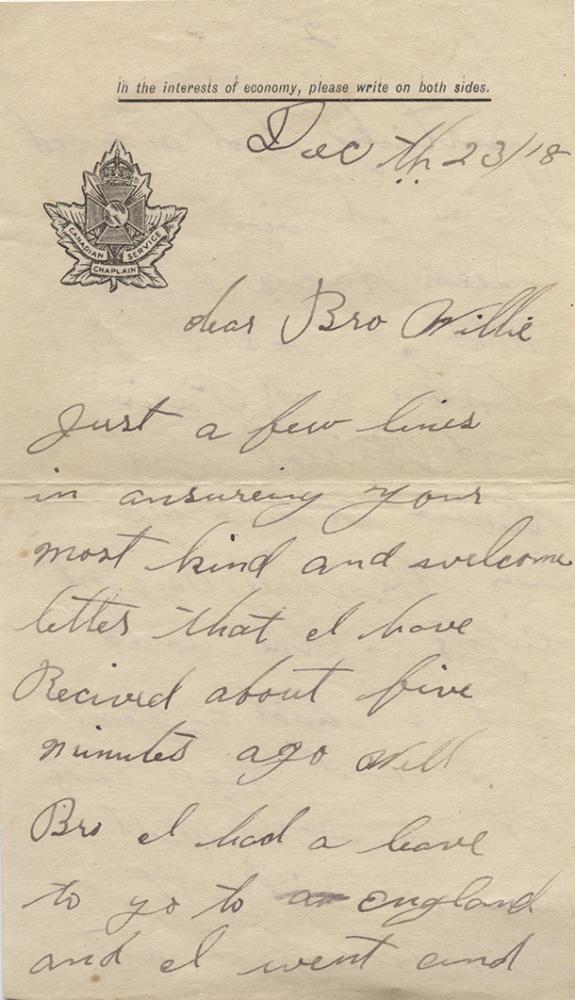 In the interests of economy, please write on both sides.
Dec th 23/18
CANADIAN SERVICE
CHAPLAIN
dear Bro Willie
Just a few lines
in ansureing your
most kind and welcome
letter that I have
Recived about five
minutes ago Will
Bro I had a leave
to go to england
and I went and